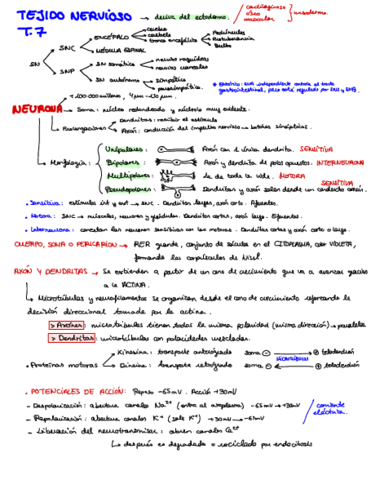 TEJIDO NERVIOSO → deriva del ectodermo.
cartilaginoso
óseo
muscular
mesodermo.
T.7
SN
SNC
ENCÉFALO
cerebro
cerebelo
tronco encefálico
Pedúnculos
Protuberancia
Bulbo
MÉDULA ESPINAL
SNP
SN somático
nervios raquídeos
nervios craneales
SN autónomo
simpático
parasimpático.
NEURONA
Soma: núcleo redondeado y nucleolo muy evidente.
Prolongaciones
Dendritas: reciben el estímulo
Axón: conducción del impulso nervioso → botones sinápticos.
Morfología:
Unipolares: Axón con 1 única dendrita. SENSITIVA
Bipolares: Axón y dendrita de polos opuestos. INTERNEURONA
Multipolares: la de toda la vida. MOTORA
Pseudopolares: Dendritas y axón salen desde un conducto común. SENSITIVA
• Sensitiva: estímulos int y ext → SNC. Dendritas largas, axón corto. Aferentes.
• Motora: SNC → músculos, neuronas y glándulas. Dendritas cortas, axón largo. Eferentes.
• Interneurona: conectan las neuronas sensitivas con las motoras. Dendritas cortas y axón corto o largo.
CUERPO, SOMA O PERICARION → RER grande, conjunto de sáculos en el CITOPLASMA, color VIOLETA,
formando los corpúsculos de Nissl.
AXÓN Y DENDRITAS → Se extienden a partir de un cono de crecimiento que va a avanzar gracias
a la ACTINA.
Microtúbulos y neurofilamentos se organizan desde el cono de crecimiento reforzando la
decisión direccional tomada por la actina.
> Axones: microtúbulos tienen todos la misma polaridad (misma dirección) → paralelos
> Dendritas: microtúbulos con polaridades mezcladas.
• Proteínas motoras
Kinesina: transporte anterógrado soma ⊖ → ⊕ telodendrón
MICROTÚBULO
Dineína: transporte retrógrado soma ⊖ ← ⊕ telodendrón
• POTENCIALES DE ACCIÓN: Reposo -65mV. Acción +30mV
- Despolarización: abertura canales Na⁺ (entra al axoplasma) -65mV → +30mV
- Repolarización: abertura canales K⁺ (sale K⁺) → -30mV → -65mV
corriente
eléctrica.
- Liberación del neurotransmisor: abren canales Ca²⁺
↳ después es degradado o reciclado por endocitosis